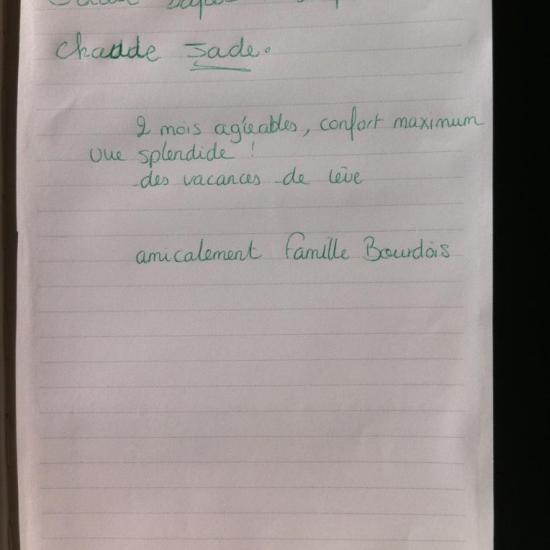 chadde Jade.
2 mois agréables, confort maximum
vue splendide !
des vacances de rêve
amicalement famille Bourdois